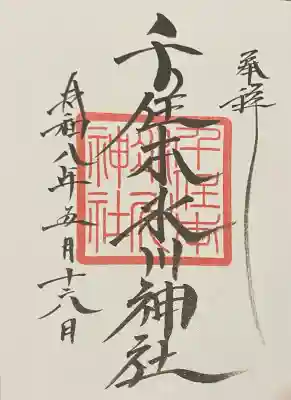 奉拝
千住本氷川神社
令和八年五月十日
千住本
氷川
神社